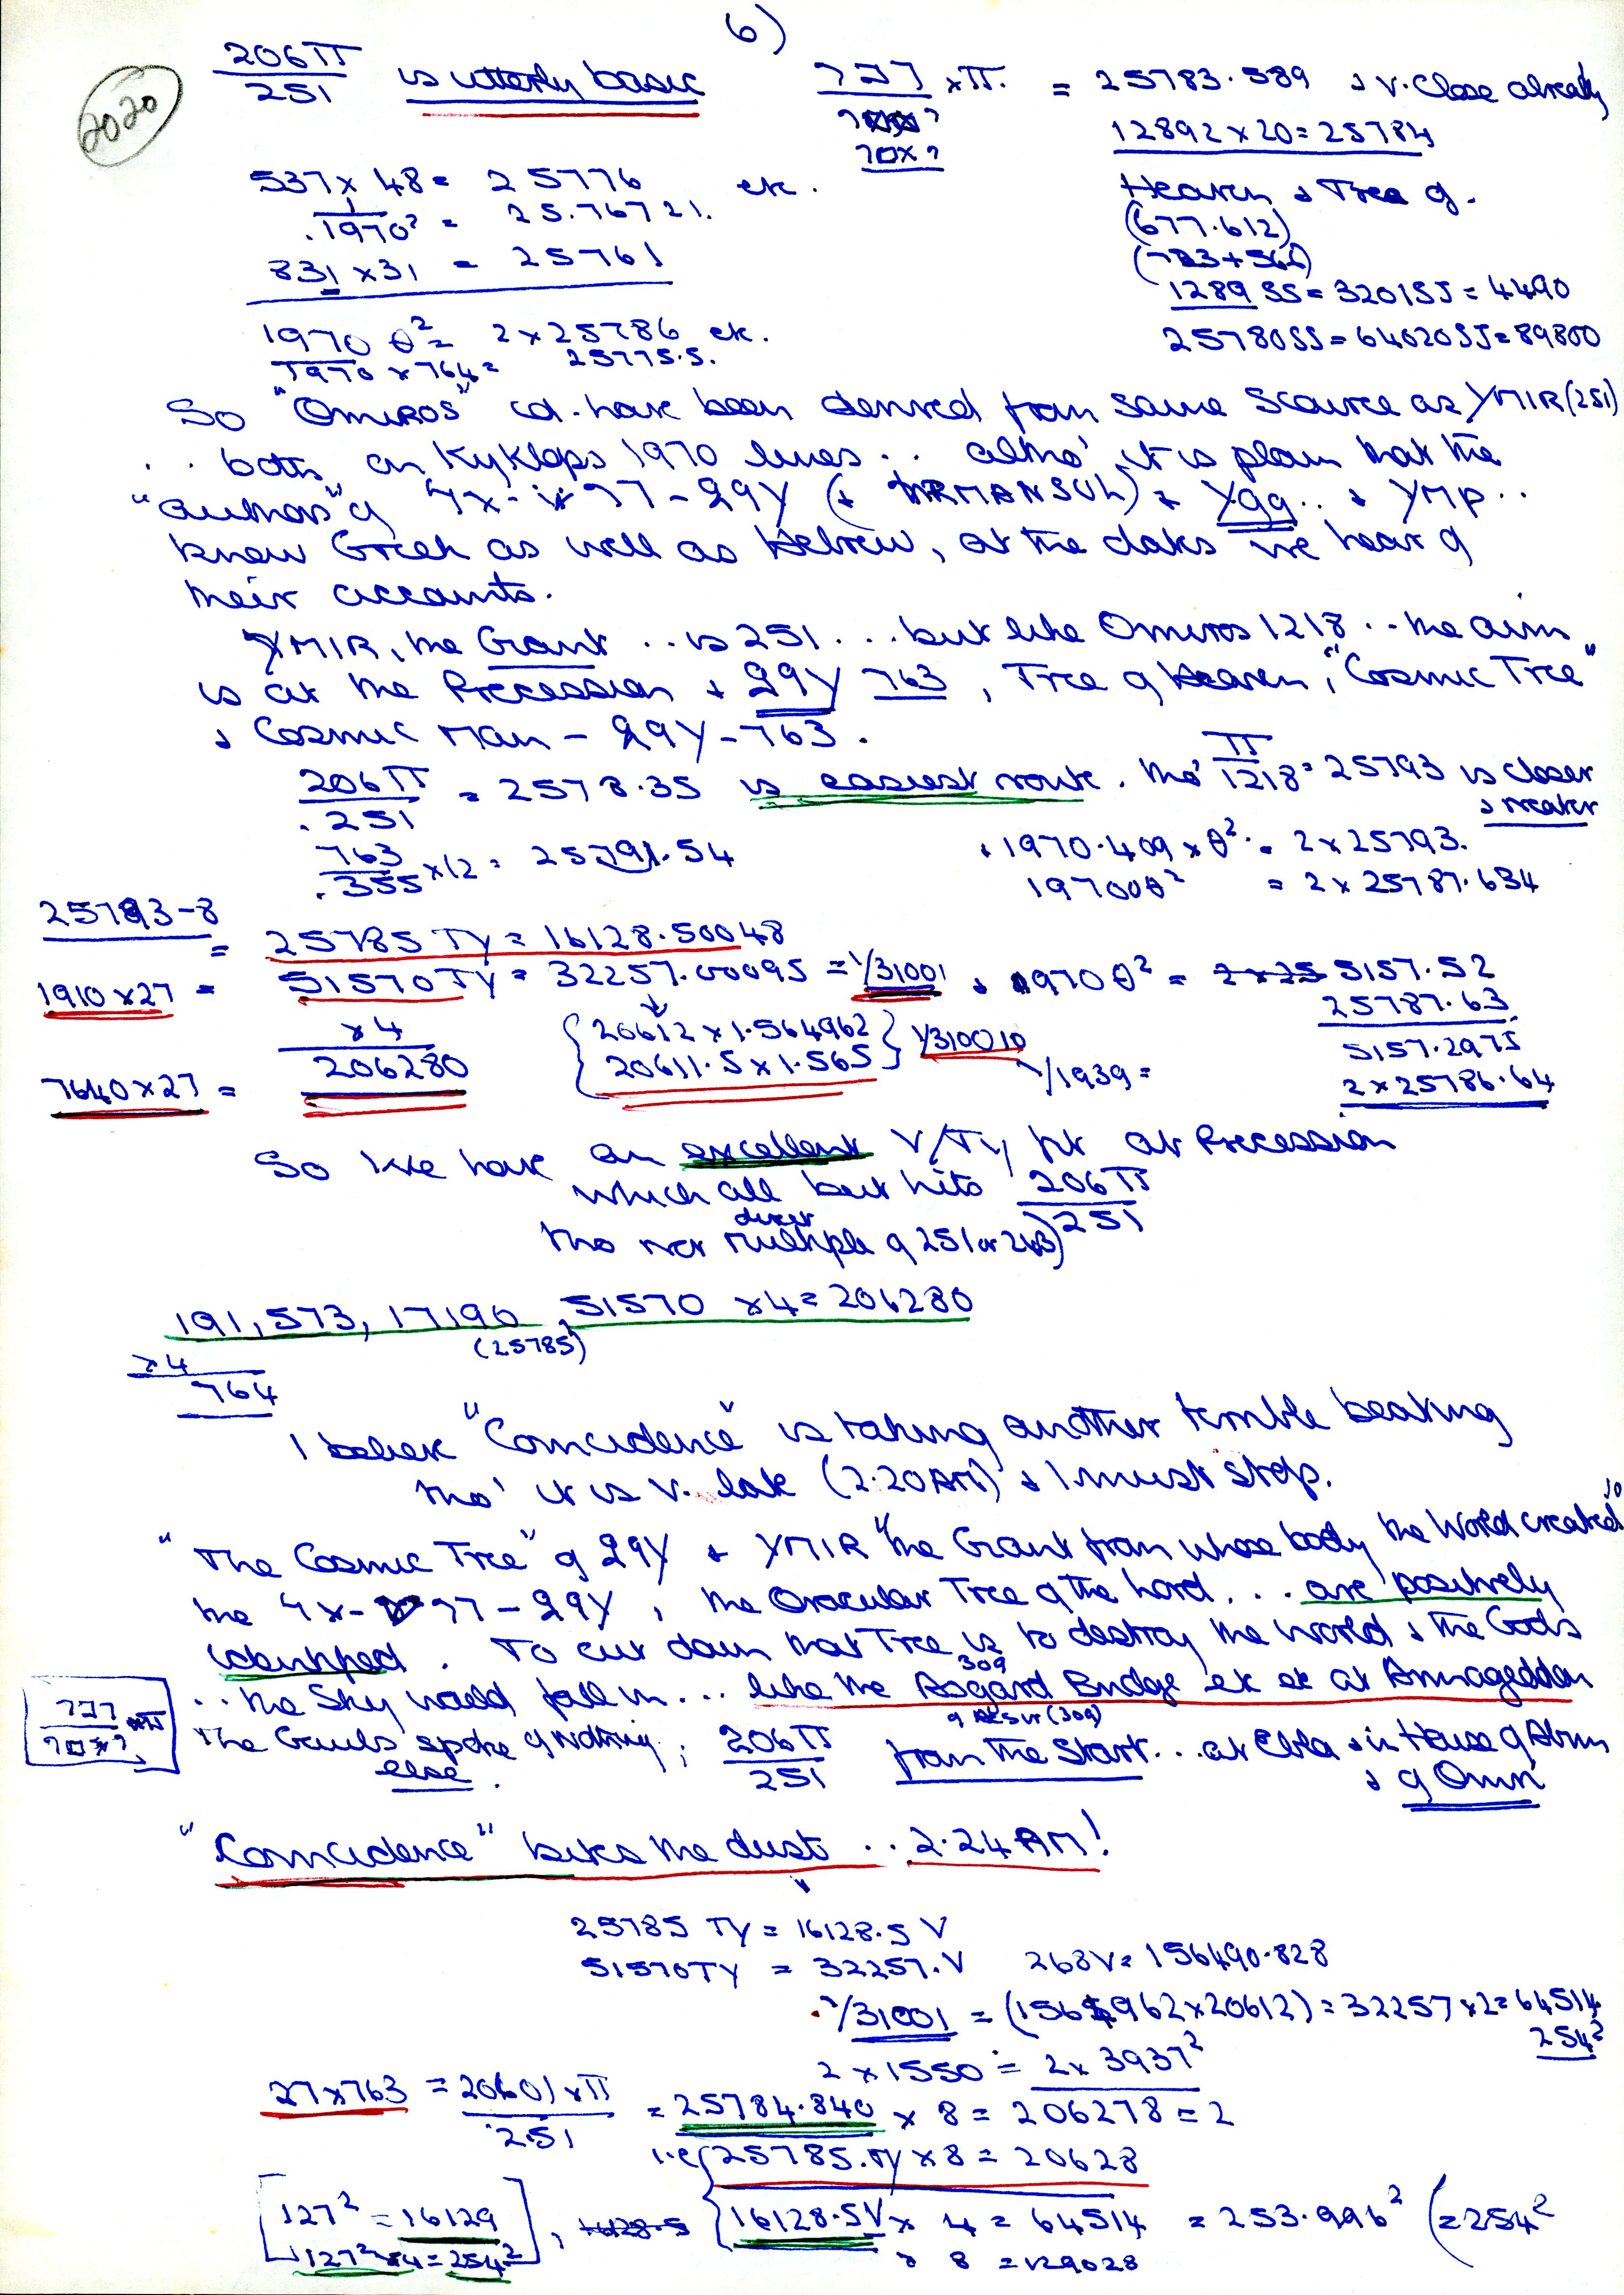 6)
2020
206π/251 is utterly basic
777/70×? ×π. = 25783.589 & v. close already
12892 × 20 = 25784
537 × 48 = 25776 etc.
Heaven & Tree of.
1/.1970² = 25.76721.
(677.612)
831 × 31 = 25761
(723+566)
1289 SS = 3201SJ = 4490
1970 θ² = 2 × 25786 etc.
25780SS = 64020SJ = 89800
1970 × 764 = 25775.5.
So "Omiros" cd. have been derived from same source as YMIR (251)
.. both on Kyklops 1970 lines .. altho' it is plain that the
"authors" of 4x- 77 - 99Y (& IRMANSUL) & Ygg .. & YMP ..
knew Greek as well as Hebrew, at the dates we hear of
their accounts.
YMIR, the Giant .. is 251 ... but like Omiros 1218 .. the aim
is at the Precession & 99Y 763, Tree of Heaven, "Cosmic Tree"
& Cosmic Man - 99Y - 763.
206π/.251 = 2578.35 is easiest route. tho' π/1218 = 25793 is closer
& neater
763/.355 × 12 = 25791.54
& 1970.409 × θ² = 2 × 25793.
19700θ² = 2 × 25787.634
25793-8
= 25785 TY = 16128.50048
1910 × 27 = 51570 TY = 32257.00095 = √31001 & 1970θ² = 5157.52
25787.63
× 4 {20612 × 1.564962
206280 20611.5 × 1.565} √310010
5157.2975
7640 × 27 =
√1939 = 2 × 25786.64
So we have an excellent V/Ty fit at Precession
which all but hits 206π/251
tho not direct multiple of 251 or 263)
191, 573, 17190, 51570 × 4 = 206280
(25785)
× 4
764
I believe "Coincidence" is taking another terrible beating
tho' it is v. late (2.20AM) & I must stop.
"The Cosmic Tree" of 99Y & YMIR "the Giant from whose body the World created"
the 4x- 77 - 99Y, the Oracular Tree of the Lord ... are positively
identified. To cut down that Tree is to destroy the World & the Gods
.. the Sky would fall in ... like the Asgard Bridge etc etc at Armageddon
309
of AESIR (309)
777/70×? ×π
The Gauls spoke of nothing else; 206π/251 from the Start ... at Ebla & in House of Abram
& of Omri
"Coincidence" bites the dust .. 2.24 AM!
25785 TY = 16128.5 V
51570TY = 32257.V 268V = 156490.828
√31001 = (1564962 × 20612) = 32257 × 2 = 64514
254²
2 × 1550 = 2 × 3937²
27 × 763 = 20601 × π/2.51 = 25784.840 × 8 = 206278 = 2
i.e. {25785.Ty × 8 = 20628
[127² = 16129
127² × 4 = 254²], {16128.5V × 4 = 64514 = 253.996² (= 254²
× 8 = 129028